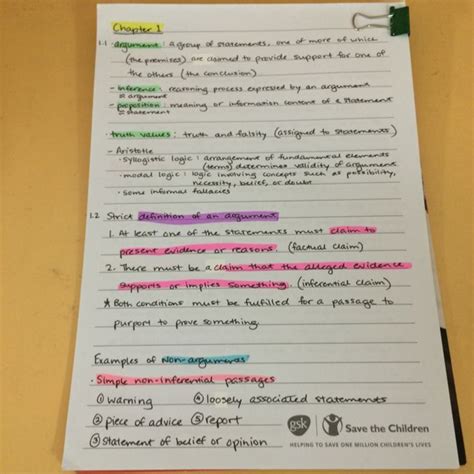 Chapter 1
1.1 argument : a group of statements, one of more of which
(the premises) are claimed to provide support for one of
the others (the conclusion)
- inference : reasoning process expressed by an argument
≈ argument
- proposition : meaning or information content of a statement
≈ statement
- truth values : truth and falsity (assigned to statements)
- Aristotle
• syllogistic logic : arrangement of fundamental elements
(terms) determines validity of argument
• modal logic : logic involving concepts such as possibility,
necessity, belief, or doubt
• some informal fallacies
1.2 Strict definition of an argument
1. At least one of the statements must claim to
present evidence or reasons. (factual claim)
2. There must be a claim that the alleged evidence
supports or implies something. (inferential claim)
* Both conditions must be fulfilled for a passage to
purport to prove something.
Examples of Non-arguments
• Simple non-inferential passages
① warning ④ loosely associated statements
② piece of advice ⑤ report
③ statement of belief or opinion
gsk Save the Children
HELPING TO SAVE ONE MILLION CHILDREN'S LIVES